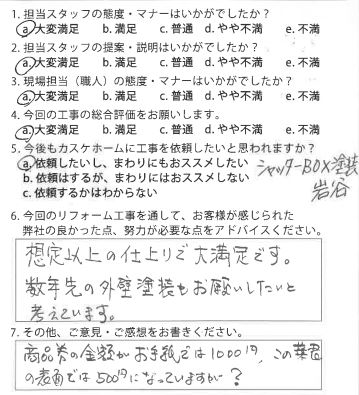 1. 担当スタッフの態度・マナーはいかがでしたか？
a. 大変満足 b. 満足 c. 普通 d. やや不満 e. 不満
2. 担当スタッフの提案・説明はいかがでしたか？
a. 大変満足 b. 満足 c. 普通 d. やや不満 e. 不満
3. 現場担当（職人）の態度・マナーはいかがでしたか？
a. 大変満足 b. 満足 c. 普通 d. やや不満 e. 不満
4. 今回の工事の総合評価をお願いします。
a. 大変満足 b. 満足 c. 普通 d. やや不満 e. 不満
5. 今後もカスケホームに工事を依頼したいと思われますか？
a. 依頼したいし、まわりにもおススメしたい
シャッターBOX塗装
b. 依頼はするが、まわりにはおススメしない
岩谷
c. 依頼するかはわからない
6. 今回のリフォーム工事を通して、お客様が感じられた
弊社の良かった点、努力が必要な点をアドバイスください。
想定以上の仕上りで大満足です。
数年先の外壁塗装もお願いしたいと
考えています。
7. その他、ご意見・ご感想をお書きください。
商品券の金額がお手紙では1000円、この葉書
の表面では500円になっていますが？